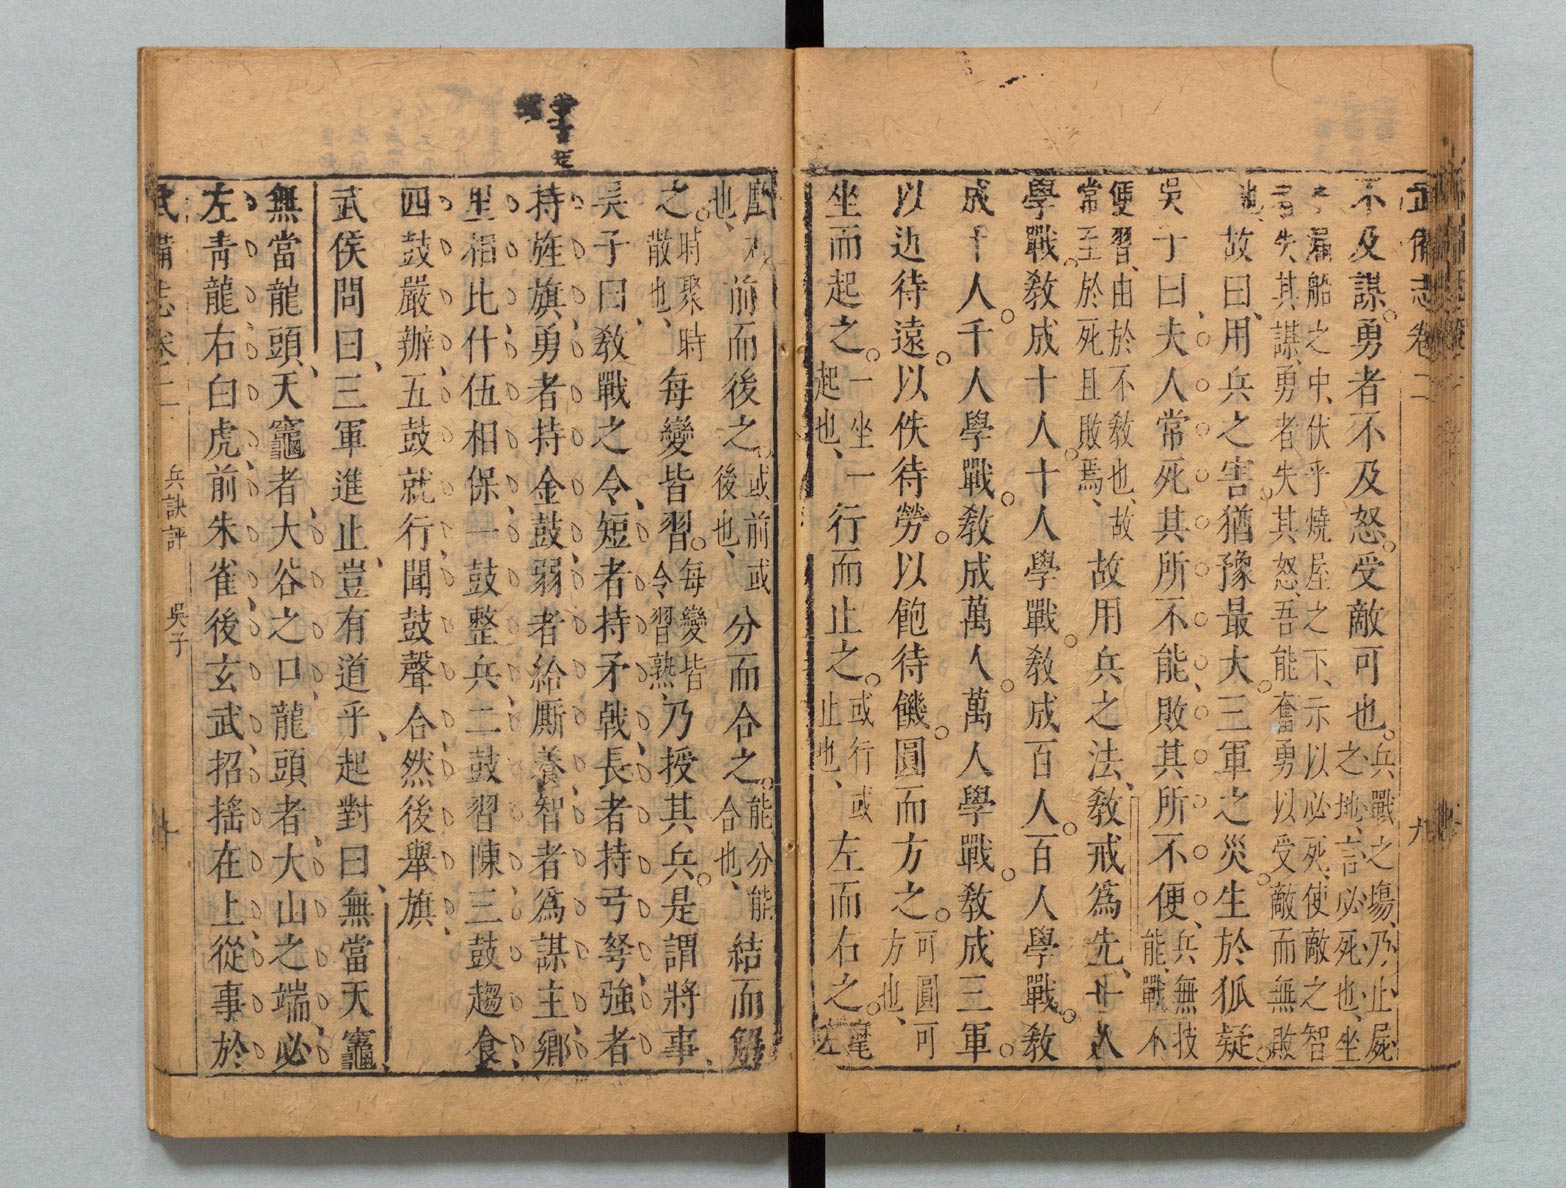 武備志卷二 九
不及謀勇者不及怒受敵可也兵戰之場乃止屍之地言必死也坐
漏船之中伏乎燒屋之下示以必死使敵之智者失其謀勇者失其怒吾能奮勇以受敵而無敢
也故曰用兵之害猶豫最大三軍之災生於狐疑
吳子曰夫人常死其所不能敗其所不便兵無技能戰不
便習由於不敎也故常至於死且敗焉故用兵之法敎戒爲先一人
學戰敎成十人十人學戰敎成百人百人學戰敎
成千人千人學戰敎成萬人萬人學戰敎成三軍
以近待遠以佚待勞以飽待饑圓而方之可圓可方也
坐而起之一坐一起也行而止之或行或止也左而右之麾左
麾右也前而後之或前或後也分而合之能分能合也結而解
之時聚時散也每變皆習每變皆令習熟乃授其兵是謂將事
吳子曰敎戰之令短者持矛戟長者持弓弩強者
持旌旗勇者持金鼓弱者給廝養智者爲謀主鄉
里相比什伍相保一鼓整兵二鼓習陳三鼓趨食
四鼓嚴辦五鼓就行聞鼓聲合然後舉旗
武侯問曰三軍進止豈有道乎起對曰無當天竈
無當龍頭天竈者大谷之口龍頭者大山之端必
左青龍右白虎前朱雀後玄武招搖在上從事於
武備志卷二 兵訣評 吳子 十